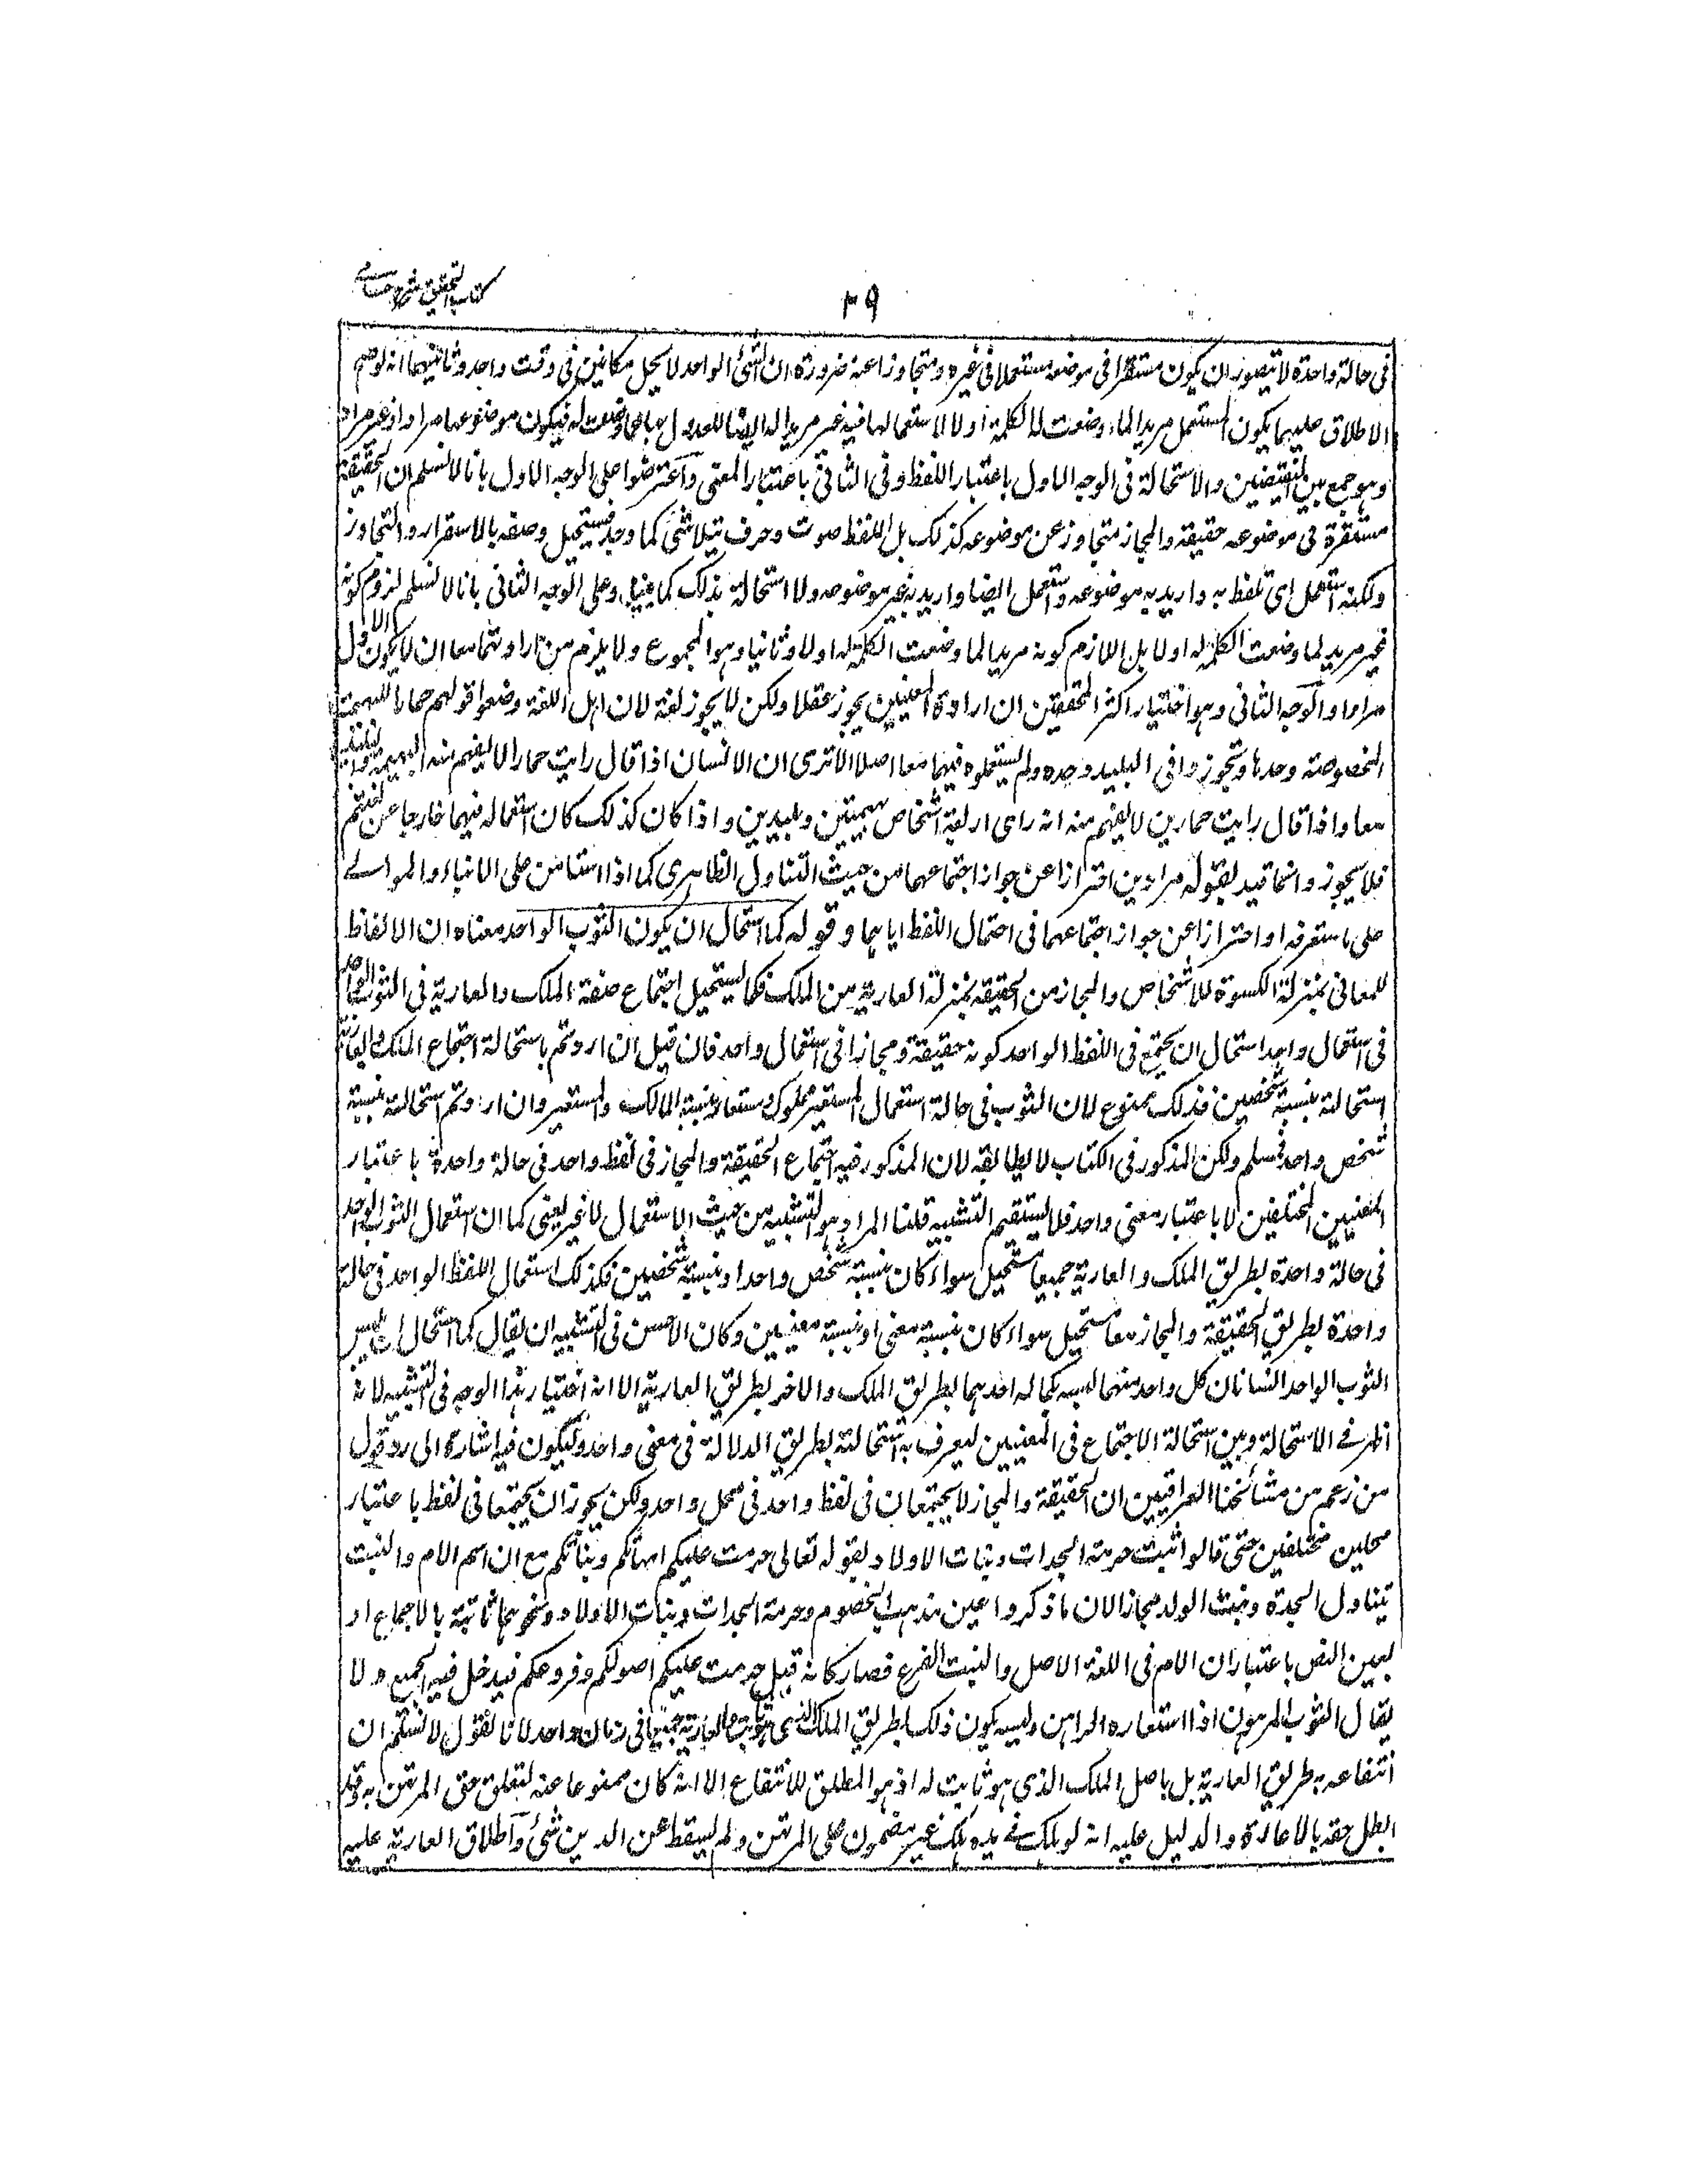 كتاب التحقيق شرح حسامى
٣٩
فى حالة واحدة لا يتصور ان يكون مستقرا فى موضوعه مستعملا فى غيره ومتجاوزا عنه ضرورة ان الشئ الواحد لا يحل مكانين فى وقت واحد وثانيهما انه لو صح
الاطلاق عليهما يكون المستعمل مريدا لما وضعت له الكلمة اولا لاستعمالها فيه غير مريد له ايضا للعدول بها عما وضعت له فيكون موضوعها مرادا وغير مراد
وهو جمع بين النقيضين والاستحالة فى الوجه الاول باعتبار اللفظ وفى الثانى باعتبار المعنى واعترضوا على الوجه الاول بانا لا نسلم ان الحقيقة
مستقرة فى موضوعه حقيقة والمجاز متجاوز عن موضوعه كذلك بل اللفظ صوت وحرف يتلاشى كما وجد فيستحيل وصفه بالاستقرار والتجاوز
ولكنه استعمل اى تلفظ به واريد به موضوعه واستعمل ايضا واريد به غير موضوعه ولا استحالة بذلك كما بينا وعلى الوجه الثانى بانا لا نسلم لزوم كونه
غير مريد لما وضعت الكلمة له اولا بل اللازم كونه مريدا لما وضعت الكلمة له اولا وثانيا وهو المجموع ولا يلزم من ارادتهما معا ان لا يكون الاول
مرادا والوجه الثانى وهو اختيار اكثر المحققين ان ارادة المعنيين يجوز عقلا ولكن لا يجوز لغة لان اهل اللغة وضعوا قولهم حمارا للبهيمة
المخصوصة وحدها وتجوزوا فى البليد وحده ولم يستعملوه فيهما معا اصلا الا ترى ان الانسان اذا قال رايت حمارا لا يفهم منه البهيمة والبليد
معا واذا قال رايت حمارين لا يفهم منه انه راى اربعة اشخاص بهيمتين وبليدين واذا كان كذلك كان استعماله فيهما خارجا عن لغتهم
فلا يجوز وانما قيد بقوله مرادين احترازا عن جواز اجتماعهما من حيث التناول الظاهرى كما اذا استامن على الابناء والموالے
على ما ستعرفه او احترازا عن جواز اجتماعهما فى احتمال اللفظ اياهما وقوله كما استحال ان يكون الثوب الواحد معناه ان الالفاظ
للمعانى بمنزلة الكسوة للاشخاص والمجاز من الحقيقة بمنزلة العارية من الملك فكما يستحيل اجتماع صفة الملك والعارية فى الثوب الواحد
فى استعمال واحد استحال ان يجتمع فى اللفظ الواحد كونه حقيقة ومجازا فى استعمال واحد فان قيل ان اردتم باستحالة اجتماع الملك والعارية
استحالته بنسبة شخصين فذلك ممنوع لان الثوب فى حالة استعمال المستعير مملوك ومستعار بنسبة المالك والمستعير وان اردتم استحالته بنسبة
شخص واحد فمسلم ولكن المذكور فى الكتاب لا يطابقه لان المذكور فيه اجتماع الحقيقة والمجاز فى لفظ واحد فى حالة واحدة باعتبار
المعنيين المختلفين لا باعتبار معنى واحد فلا يستقيم التشبيه قلنا المراد هو التشبيه من حيث الاستعمال لا غير يعنى كما ان استعمال الثوب الواحد
فى حالة واحدة بطريق الملك والعارية جميعا مستحيل سواء كان بنسبة شخص واحد او بنسبة شخصين فكذلك استعمال اللفظ الواحد فى حالة
واحدة بطريق الحقيقة والمجاز معا مستحيل سواء كان بنسبة معنى او بنسبة معنيين وكان الاحسن فى التشبيه ان يقال كما استحال ان يلبس
الثوب الواحد انسانان كل واحد منهما يلبسه بكماله احدهما بطريق الملك والاخر بطريق العارية الا انه اختيار هذا الوجه فى التشبيه لانه
اظهر فے الاستحالة وبين استحالة الاجتماع فى المعنيين ليعرف به استحالته بطريق الدلالة فى معنى واحد وليكون فيه اشارة الى رد قول
من زعم من مشائخنا العراقيين ان الحقيقة والمجاز لا يجتمعان فى لفظ واحد فى محل واحد ولكن يجوز ان يجتمعا فى لفظ باعتبار
محلين مختلفين حتى قالوا ثبت حرمة الجدات وبنات الاولاد بقوله تعالى حرمت عليكم امهاتكم وبناتكم مع ان اسم الام والبنت
يتناول الجدة وبنت الولد مجازا لان ما ذكروا عين مذهب الخصوم وحرمة الجدات وبنات الاولاد ونحوهما ثابتة بالاجماع او
بعين النص باعتبار ان الام فى اللغة الاصل والبنت الفرع فصار كانه قيل حرمت عليكم اصولكم وفروعكم فيدخل فيه الجميع ولا
يقال الثوب المرهون اذا استعاره الراهن ولبسه يكون ذلك بطريق الملك الذى هو ثابت والعارية جميعا فى زمان واحد لانا نقول لا نسلم ان
انتفاعه بطريق العارية بل باصل الملك الذى هو ثابت له اذ هو المطلق للانتفاع الا انه كان ممنوعا عنه لتعلق حق المرتهن به وقد
ابطل حقه بالاعارة والدليل عليه انه لو هلك فے يده هلك غير مضمون على المرتهن ولم يسقط عن الدين شئ واطلاق العارية عليه